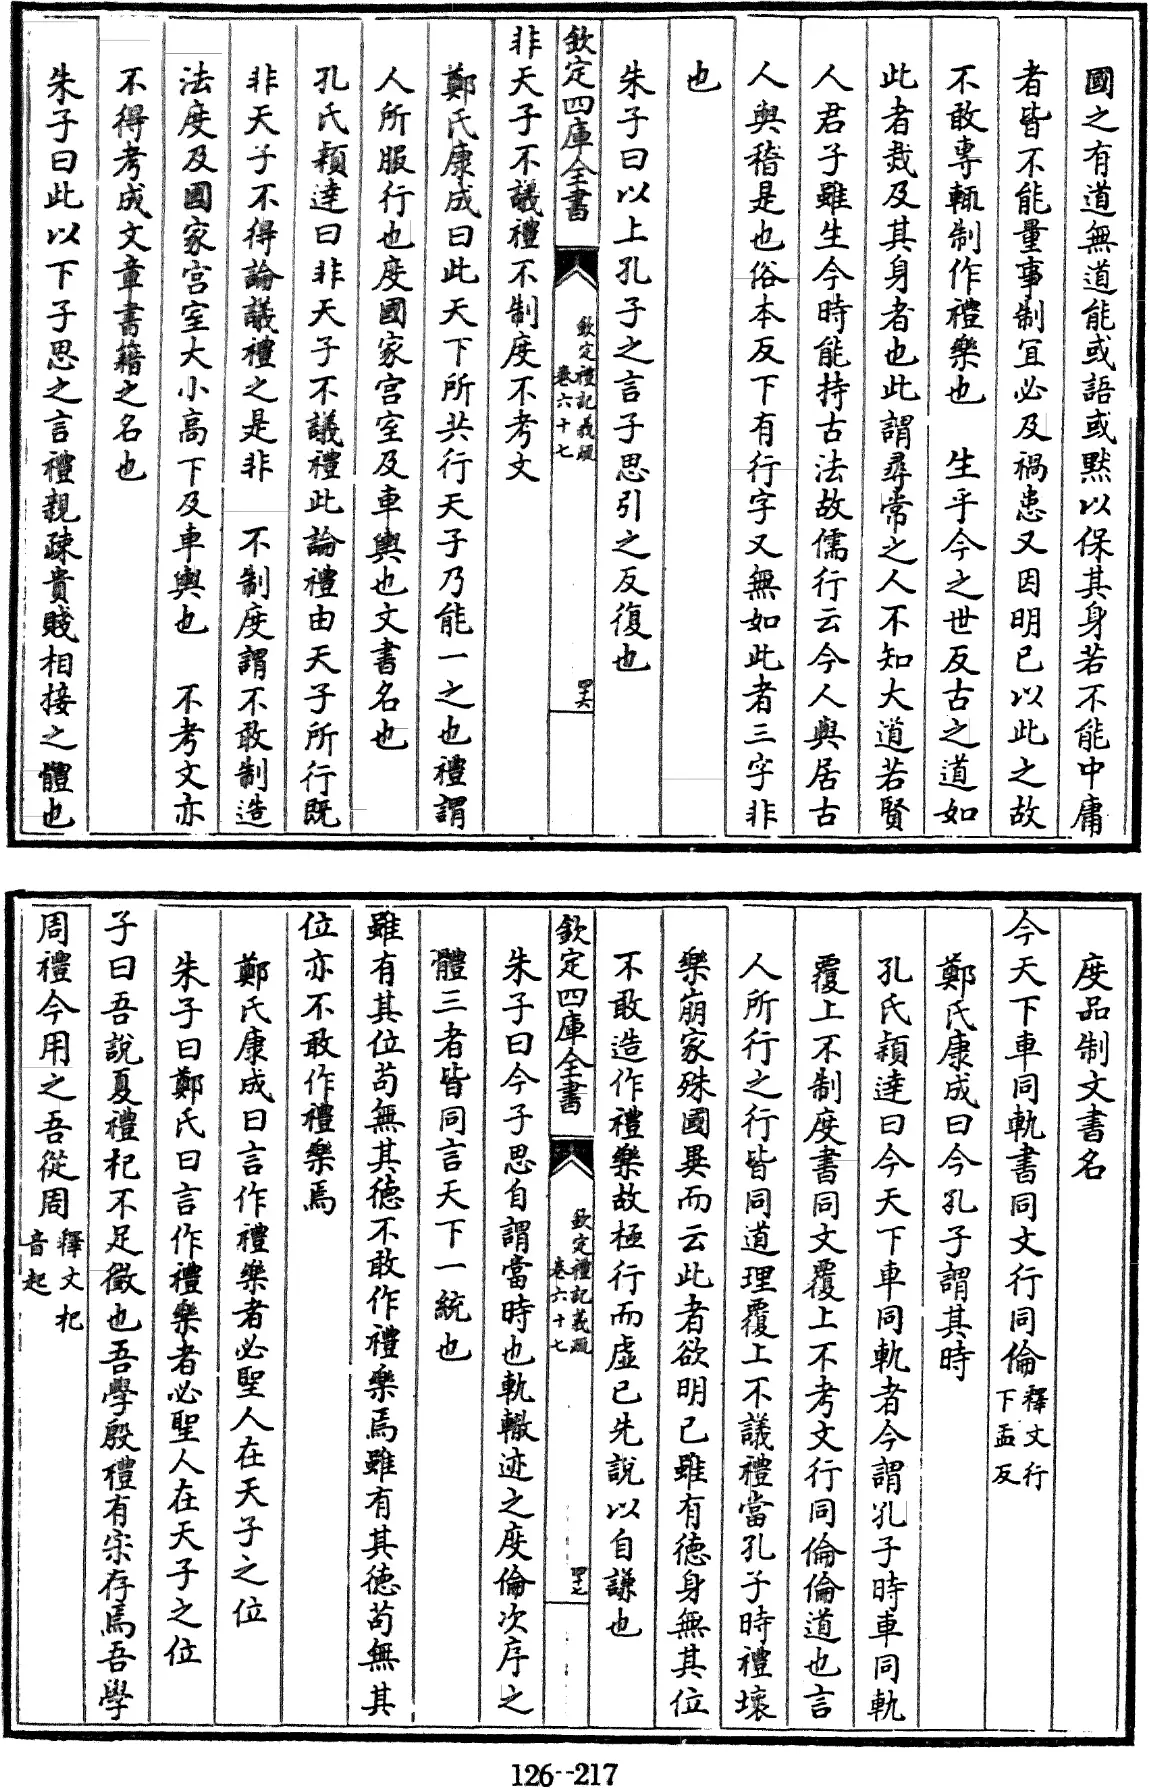 國之有道無道能或語或默以保其身若不能中庸
者皆不能量事制宜必及禍患又因明已以此之故
不敢專輒制作禮樂也　生乎今之世反古之道如
此者烖及其身者也此謂尋常之人不知大道若賢
人君子雖生今時能持古法故儒行云今人與居古
人與稽是也俗本反下有行字又無如此者三字非
也
朱子曰以上孔子之言子思引之反復也
欽定四庫全書
欽定禮記義疏
卷六十七
四六
非天子不議禮不制度不考文
鄭氏康成曰此天下所共行天子乃能一之也禮謂
人所服行也度國家宫室及車輿也文書名也
孔氏穎達曰非天子不議禮此論禮由天子所行既
非天子不得論議禮之是非　不制度謂不敢制造
法度及國家宫室大小高下及車輿也　不考文亦
不得考成文章書籍之名也
朱子曰此以下子思之言禮親疎貴賤相接之體也
度品制文書名
今天下車同軌書同文行同倫釋文行
下孟反
鄭氏康成曰今孔子謂其時
孔氏穎達曰今天下車同軌者今謂孔子時車同軌
覆上不制度書同文覆上不考文行同倫倫道也言
人所行之行皆同道理覆上不議禮當孔子時禮壞
樂崩家殊國異而云此者欲明已雖有德身無其位
不敢造作禮樂故極行而虛已先說以自謙也
朱子曰今子思自謂當時也軌轍迹之度倫次序之
欽定四庫全書
欽定禮記義疏
卷六十七
四七
體三者皆同言天下一統也
雖有其位苟無其德不敢作禮樂焉雖有其德苟無其
位亦不敢作禮樂焉
鄭氏康成曰言作禮樂者必聖人在天子之位
朱子曰鄭氏曰言作禮樂者必聖人在天子之位
子曰吾說夏禮杞不足徵也吾學殷禮有宋存焉吾學
周禮今用之吾從周釋文杞
音起
126--217